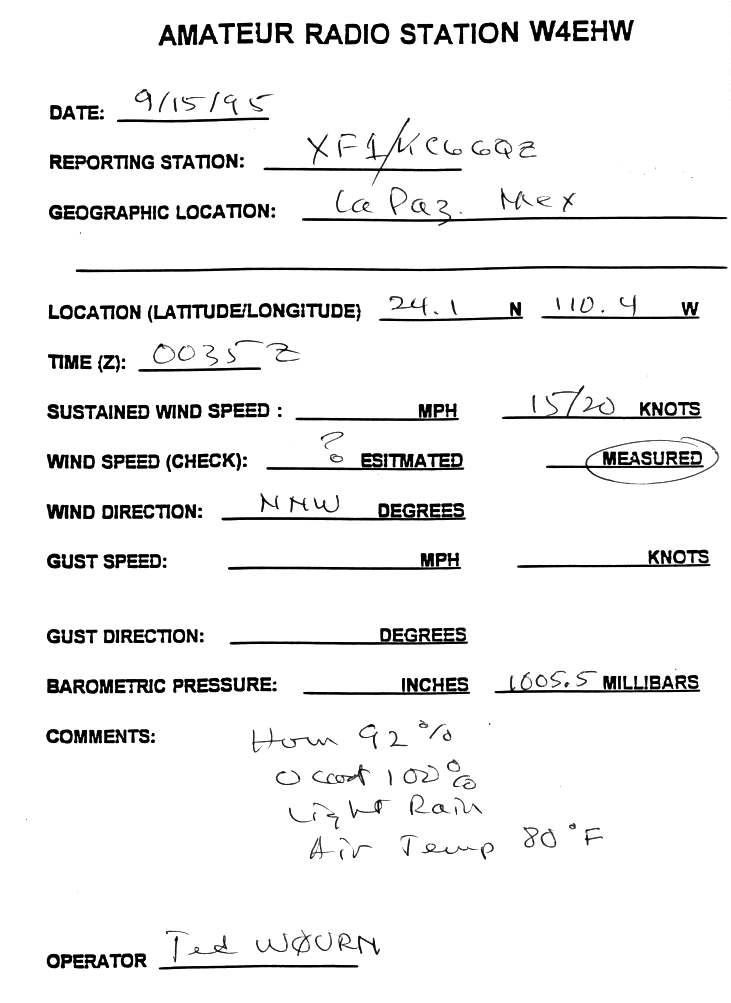 AMATEUR RADIO STATION W4EHW
DATE: 9/15/95
REPORTING STATION: XF1/KC6GQZ
GEOGRAPHIC LOCATION: La Paz. Mex
LOCATION (LATITUDE/LONGITUDE) 24.1 N 110.4 W
TIME (Z): 0035 Z
SUSTAINED WIND SPEED : MPH 15/20 KNOTS
WIND SPEED (CHECK): ? ESITMATED MEASURED
WIND DIRECTION: NNW DEGREES
GUST SPEED: MPH KNOTS
GUST DIRECTION: DEGREES
BAROMETRIC PRESSURE: INCHES 1005.5 MILLIBARS
COMMENTS: Hum 92%
O cast 100%
Light Rain
Air Temp 80°F
OPERATOR Ted WØURN